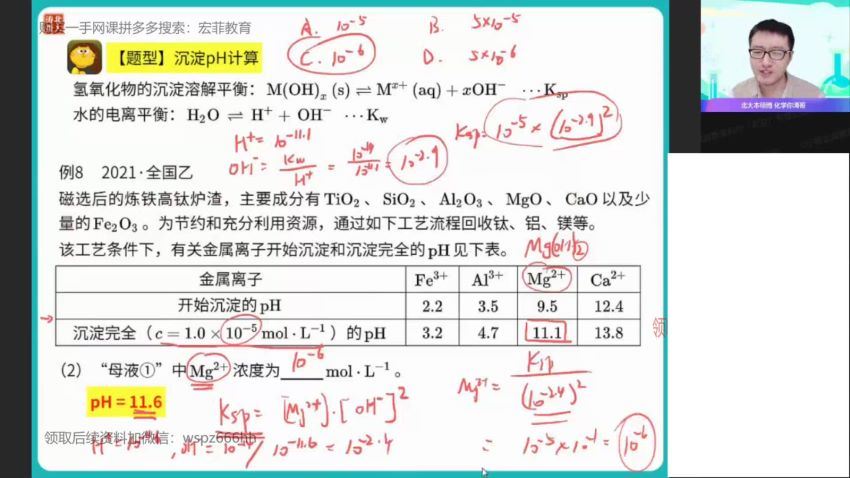 购买一手网课拼多多搜索：宏菲教育
A. 10⁻⁵ B. 5×10⁻⁵
C. 10⁻⁶ D. 5×10⁻⁶
【题型】沉淀pH计算
氢氧化物的沉淀溶解平衡：M(OH)ₓ (s) ⇌ Mˣ⁺ (aq) + xOH⁻ ⋯Kₛₚ
水的电离平衡：H₂O ⇌ H⁺ + OH⁻ ⋯K_w
Ksp = 10⁻⁵ × (10⁻²·⁹)²
H⁺ = 10⁻¹¹·¹
OH⁻ = Kw/H⁺ = 10⁻¹⁴/10⁻¹¹·¹ = 10⁻²·⁹
例8 2021·全国乙
磁选后的炼铁高钛炉渣，主要成分有TiO₂、SiO₂、Al₂O₃、MgO、CaO以及少
量的Fe₂O₃。为节约和充分利用资源，通过如下工艺流程回收钛、铝、镁等。
该工艺条件下，有关金属离子开始沉淀和沉淀完全的pH见下表。
Mg(OH)₂
金属离子 Fe³⁺ Al³⁺ Mg²⁺ Ca²⁺
开始沉淀的pH 2.2 3.5 9.5 12.4
沉淀完全（c = 1.0 × 10⁻⁵ mol·L⁻¹）的pH 3.2 4.7 11.1 13.8
领
（2）“母液①”中Mg²⁺浓度为 10⁻⁶ mol·L⁻¹。
pH = 11.6
Ksp = [Mg²⁺]·[OH⁻]²
Mg²⁺ = Ksp/(10⁻²·⁴)²
领取后续资料加微信：wspz666hh
OH⁻ = 10⁻¹⁴/10⁻¹¹·⁶ = 10⁻²·⁴
= 10⁻⁵ × 10⁻¹ = 10⁻⁶
北大本硕博 化学你涛哥